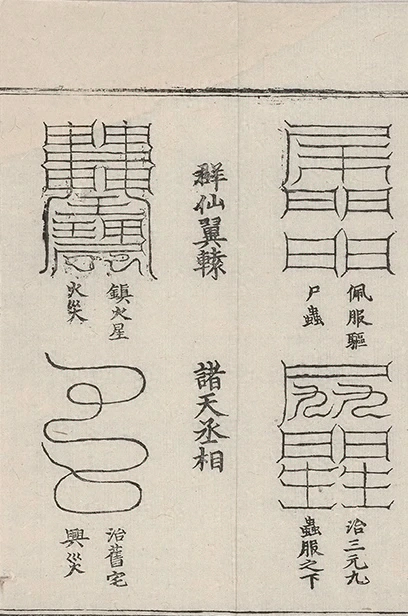 佩服驅
尸蟲
群仙翼轅
鎮火星
火災
治三元九
蟲服之下
諸天丞相
治舊宅
興災